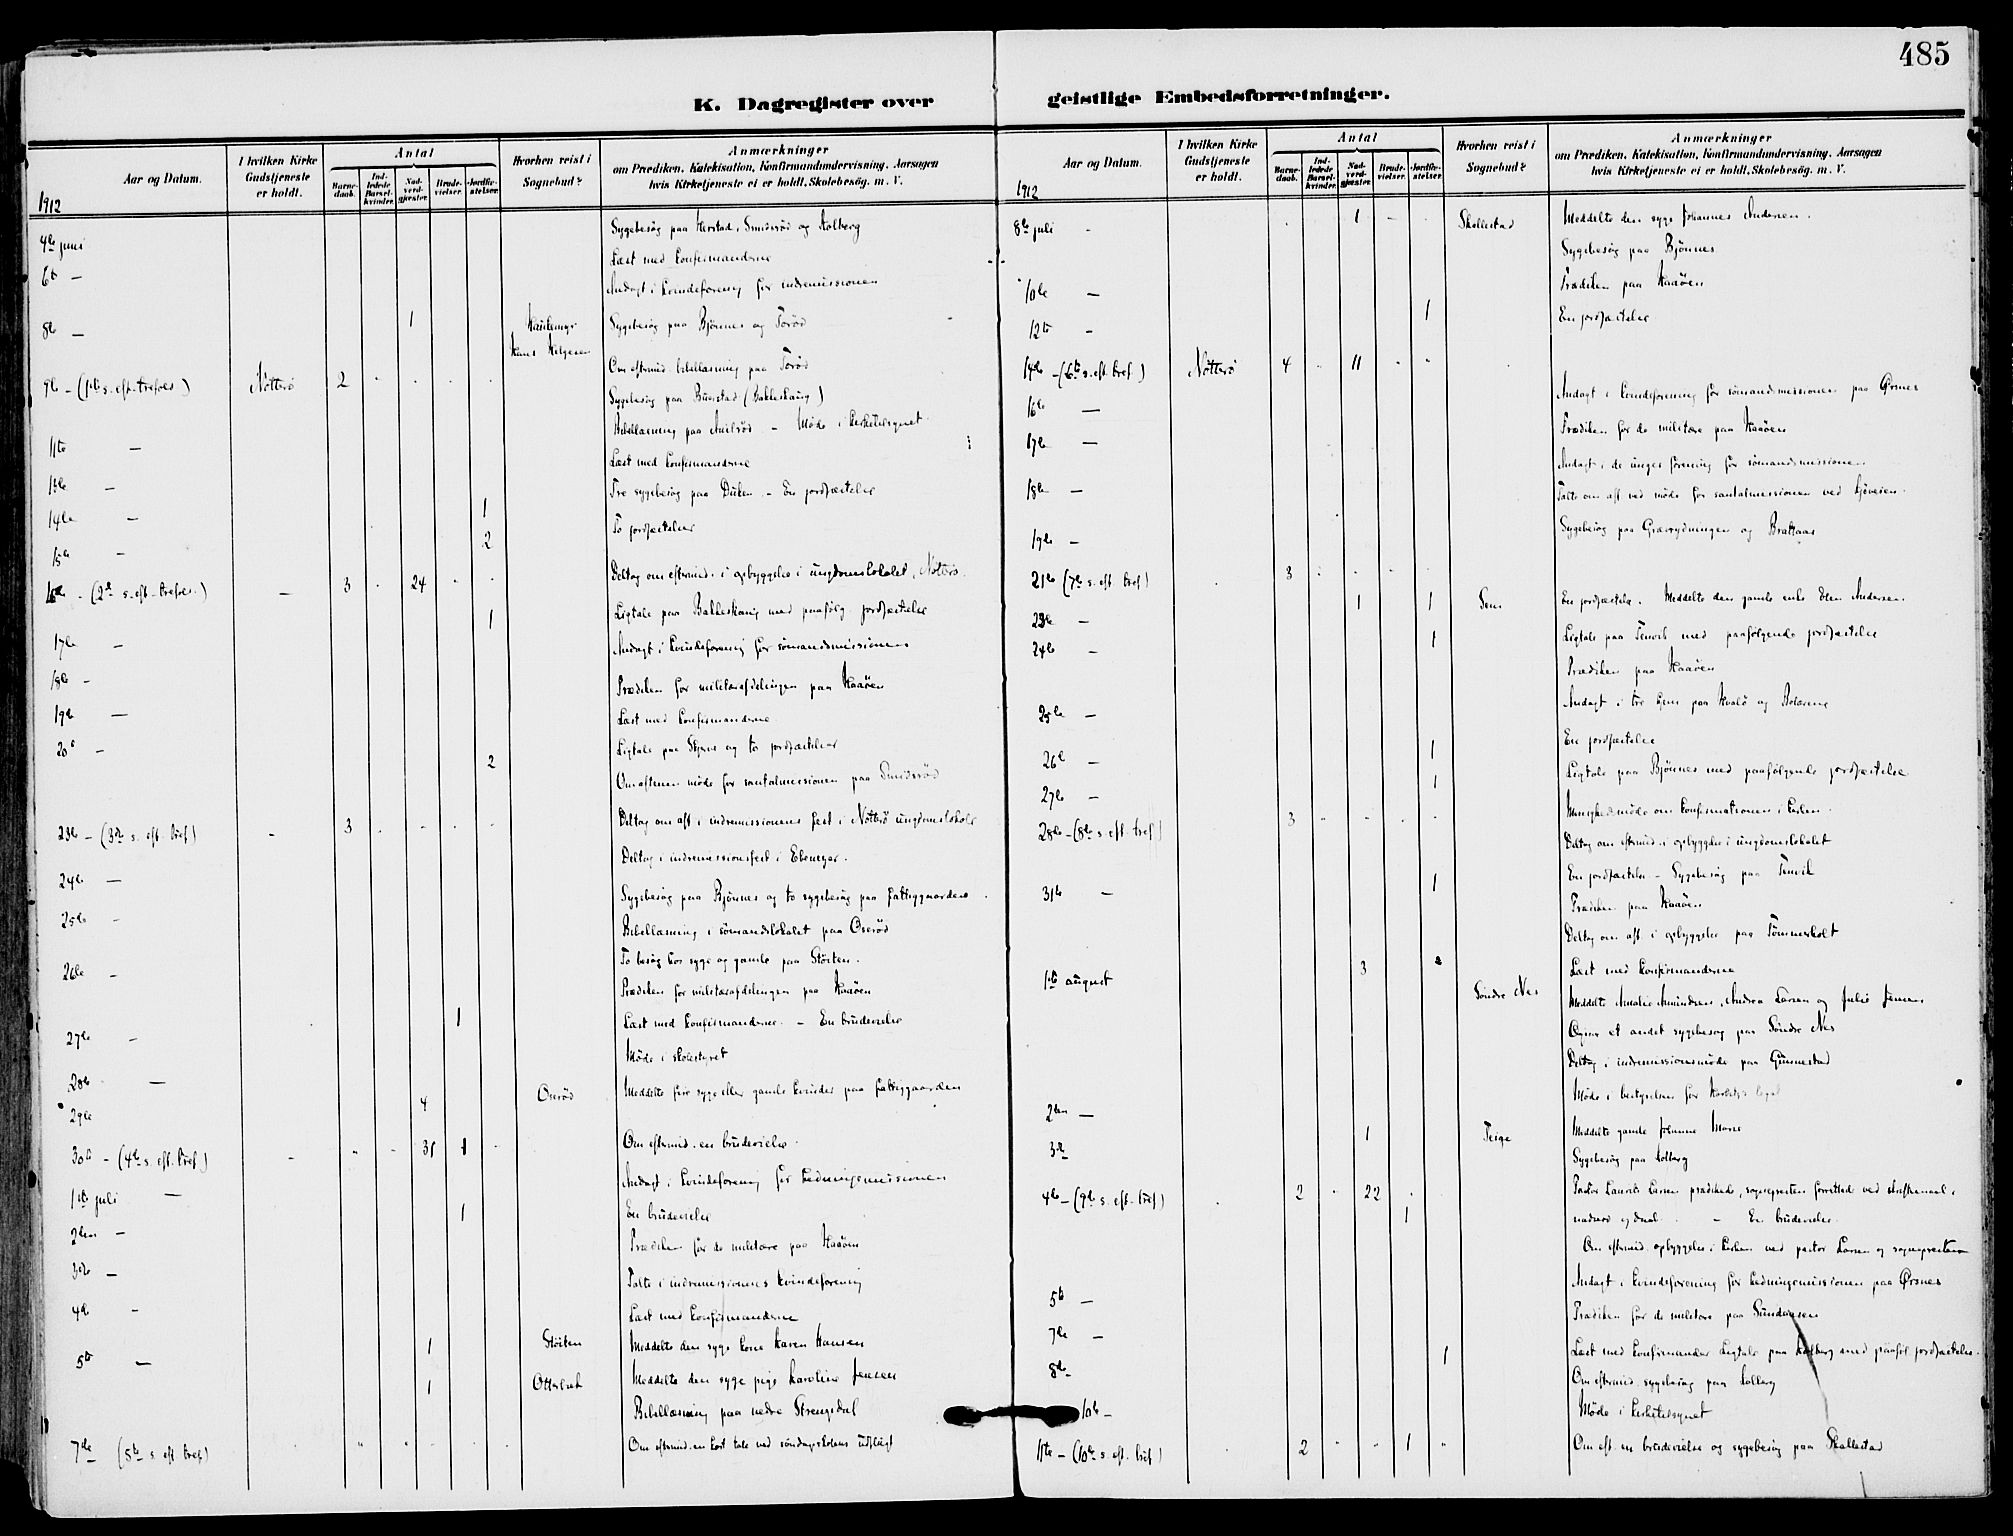 485
K. Dagregister over geistlige Embedsforretninger.
Aar og Datum.
I hvilken Kirke Gudstjeneste er holdt.
Antal
Barnedaab.
Indledede Barselkvinder.
Nadverdgjæster.
Brudevielser.
Jordfæstelser.
Hvorhen reist i Sognebud?
Anmærkninger
om Prædiken, Katekisation, Konfirmandundervisning, Aarsagen
hvis Kirketjeneste ei er holdt, Skolebesøg, m. V.
1912
4de juni Sygebesøg paa Herstad, Smidsrød og Kolberg
6te — Læst med konfirmanderne
Andagt i kvindeforening for indremissionen
8de — 1 Sygebesøg paa Bjønnes og Torød
Hans Helgesen
Om eftermid. bibellæsning paa Torød
9de — (1ste s. eft. trefoes.) Nøtterø 2
Sygebesøg paa Buerstad (Bakkeskaug)
11te — Bibellæsning paa — Møde i kirketilsynet
13de — Læst med konfirmanderne
14de — 1 Tre sygebesøg paa Duken. — En jordfæstelse
15de — 2 To jordfæstelser
16de — (2den s. eft. trefoes.) — 3 24 Deltog om eftermid. i opbyggelse i ungdomslokalet, Nøtterø.
17de — 1 Ligtale paa Bakkeskaug med paafølg. jordfæstelse
Andagt i kvindeforening for sømandsmissionen
18de —
19de — Prædiken for militærafdelingen paa Haaøen
20de — Læst med konfirmanderne
2 Ligtale paa og to jordfæstelser
Om aftenen møde for santalmissionen paa Smidsrød
23de — (3die s. eft. tref.) — 3 Deltog om aft. i indremissionens fest i Nøtterø ungdomslokale
24de — Deltog i indremissionsfest i Ebenezer.
25de — Sygebesøg paa Bjønnes og to sygebesøg paa fattiggaarden
Bibellæsning i sømandslokalet paa Oserød
26de — To besøg hos syge og gamle paa Støiten.
Prædiken for militærafdelingen paa Haaøen
27de — 1 Læst med konfirmanderne. — En brudevielse
28de — Møde i skolestyret
29de 4 Oserød Meddelte fire syge eller gamle kvinder paa fattiggaarden
30te — (4de s. eft. tref.) — 31 1 Om eftermid. en brudevielse.
1ste juli — Andagt i kvindeforening for hedningemissionen
1 En brudevielse
2den — Prædiken for de militære paa Haaøen
3die — Talte i indremissionens kvindeforening
4de — Læst med konfirmanderne
5te — 1 Støiten Meddelte den syge kone Karen Hansen
1 Otterbæk Meddelte den syge pige Karoline Jensen
Bibellæsning paa nedre Strengsdal
7de (5te s. eft. tref.) Om eftermid. en kort tale ved søndagsskolens udflugt
1912
8de juli — 1 Skallestad Meddelte den syge Johannes Andersen.
Sygebesøg paa Bjønnes
10de — Prædiken paa Haaøen
12te — 1 En jordfæstelse
14de — (6te s. eft. tref.) Nøtterø 4 11
16de — Andagt i kvindeforening for sømandsmissionen paa Ørsnes
17de — Prædiken for de militære paa Haaøen
Andagt i de unges forening for sømandsmissionen
18de — Talte om aft. ved møde for santalmissionen ved
19de — Sygebesøg paa Grævrydningen og Brattaas
21de (7de s. eft. tref.) 3
1 1 Sem En jordfæstelse. Meddelte den gamle enke Elen Andersen
23de —
24de — 1 Ligtale paa Tenvik med paafølgende jordfæstelse
Prædiken paa Haaøen
25de — Andagt i tre hjem paa Hvalø og
26de — 1 En jordfæstelse
27de — 1 Ligtale paa Bjønnes med paafølgende jordfæstelse
Menighedsmøde om konfirmationen i kirken.
28de — (8de s. eft. tref.) 3
Deltog om eftermid. i opbyggelse i ungdomslokalet
31te — 1 En jordfæstelse — Sygebesøg paa Tenvik
Prædiken paa Haaøen
Deltog om aft. i opbyggelse paa Tømmerholt
1ste august 3 Læst med konfirmanderne
Søndre Nes Meddelte Amalie Amundsen, Andrea Larsen og Julie Jensen
Ogsaa et andet sygebesøg paa Søndre Nes
Deltog i indremissionsmøde paa Gunnestad
2den — Møde i bestyrelsen for legat
3die 1 Teige Meddelte gamle Johanne
Sygebesøg paa Kolberg
4de — (9de s. eft. tref.) 2 22 Pastor Laurits Larsen prædikede, sognepresten forrettede ved skriftemaal,
1 nadver og daab. — En brudevielse.
Om eftermid. opbyggelse i kirken ved pastor Larsen og sognepresten
5te — Andagt i kvindeforening for hedningemissionen paa Ørsnes
7de — Prædiken for de militære paa
8de 1 Læst med konfirmander Ligtale paa Kolberg med paaføl. jordfæstelse.
Om eftermid. sygebesøg paa Kolberg
10de — Møde i kirketilsynet
11te — (10de s. eft. tref.) 2 1 Om eft. en brudevielse og sygebesøg paa Skallestad